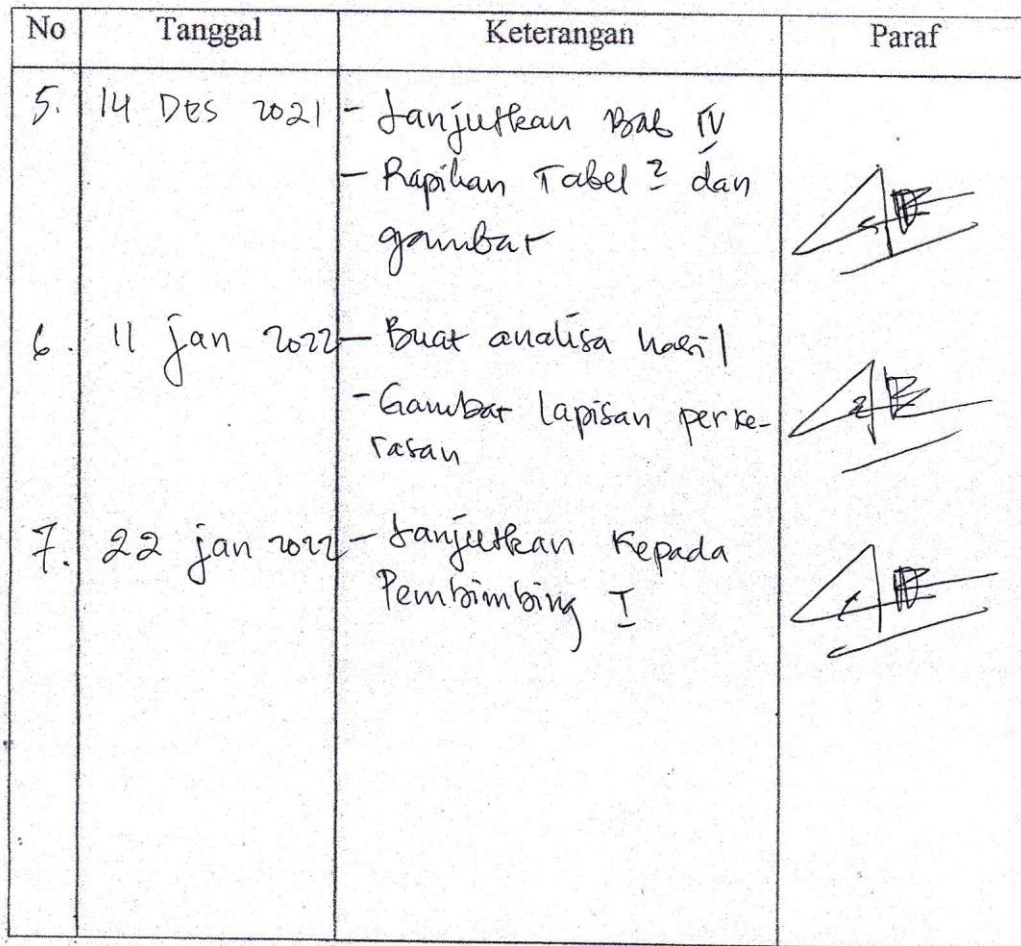 No Tanggal Keterangan Paraf
5. 14 DES 2021 - Lanjutkan Bab IV
- Rapihan Tabel 2 dan
gambar
6. 11 jan 2022 - Buat analisa hasil
- Gambar lapisan perke-
rasan
7. 22 jan 2022 - Lanjutkan Kepada
Pembimbing I